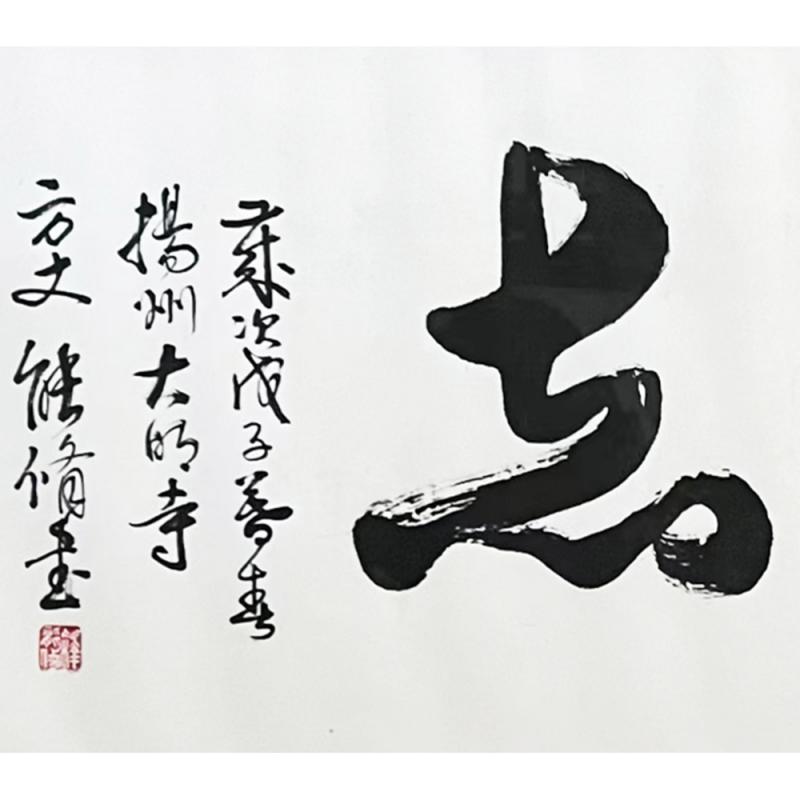 歲次戊子暮春
揚州大明寺
方丈能修書